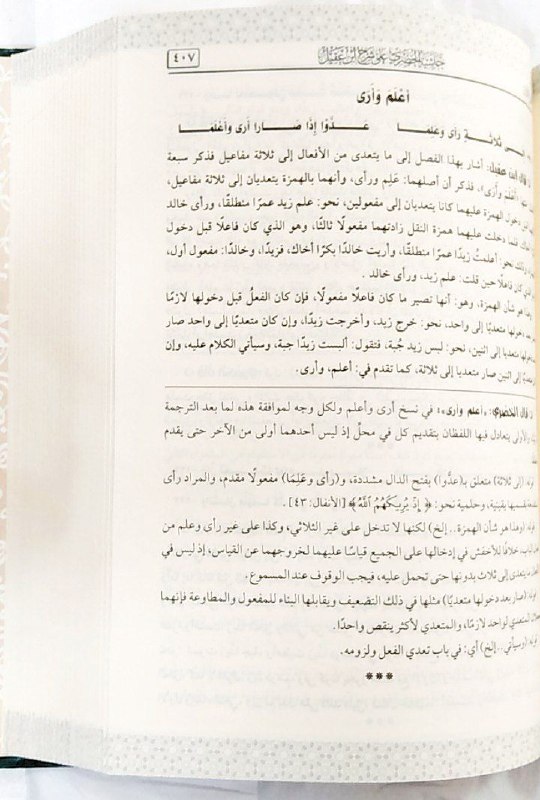 حاشية الخضري على شرح ابن عقيل
٤٠٧
أَعْلَمَ وَأَرَى
ثلاثةٍ رأى وعَلِمَا عَدَّوْا إِذَا صَارا أَرَى وَأَعْلَمَا
قال ابن عقيل: أشار بهذا الفصل إلى ما يتعدى من الأفعال إلى ثلاثة مفاعيل فذكر سبعة
أعْلَم وأَرَى، فذكر أن أصلهما: عَلِم ورأى، وأنهما بالهمزة يتعديان إلى ثلاثة مفاعيل،
دخول الهمزة عليهما كانا يتعديان إلى مفعولين، نحو: علم زيد عمرًا منطلقًا، ورأى خالد
أخاك، فلما دخلت عليهما همزة النقل زادتهما مفعولًا ثالثًا، وهو الذي كان فاعلًا قبل دخول
وذلك نحو: أعلمتُ زيدًا عمرًا منطلقًا، وأريت خالدًا بكرًا أخاك، فزيدًا، وخالدًا: مفعول أول،
كان فاعلًا حين قلت: علم زيد، ورأى خالد.
هو شأن الهمزة، وهو: أنها تصير ما كان فاعلًا مفعولًا، فإن كان الفعلُ قبل دخولها لازمًا
دخولها متعديًا إلى واحد، نحو: خرج زيد، وأخرجت زيدًا، وإن كان متعديًا إلى واحد صار
دخولها متعديا إلى اثنين، نحو: لبس زيد جُبة، فتقول: ألبست زيدًا جبة، وسيأتي الكلام عليه، وإن
متعديًا إلى اثنين صار متعديا إلى ثلاثة، كما تقدم في: أعلم، وأرى.
قال الخضري: «أعلم وأرى» في نسخ أرى وأعلم ولكل وجه لموافقة هذه لما بعد الترجمة
والأولى يتعادل فيها اللفظان بتقديم كل في محلٍّ إذ ليس أحدهما أولى من الآخر حتى يقدم
قوله: (إلى ثلاثة) متعلق بـ(عدَّوا) بفتح الدال مشددة، و(رأى وعَلِمَا) مفعولًا مقدم، والمراد رأى
بقسميها يقينية، وحلمية نحو: ﴿ إِذْ يُرِيكَهُمُ اللَّهُ ﴾ [الأنفال: ٤٣].
قوله: (وهذا هو شأن الهمزة.. إلخ) لكنها لا تدخل على غير الثلاثي، وكذا على غير رأى وعلم من
خلافًا للأخفش في إدخالها على الجميع قياسًا عليهما لخروجهما عن القياس، إذ ليس في
ما يتعدى إلى ثلاث بدونها حتى تحمل عليه، فيجب الوقوف عند المسموع.
قوله: (صار بعد دخولها متعديًا) مثلها في ذلك التضعيف ويقابلها البناء للمفعول والمطاوعة فإنهما
المتعدي لواحد لازمًا، والمتعدي لأكثر ينقص واحدًا.
قوله: (وسيأتي.. إلخ) أي: في باب تعدي الفعل ولزومه.
***